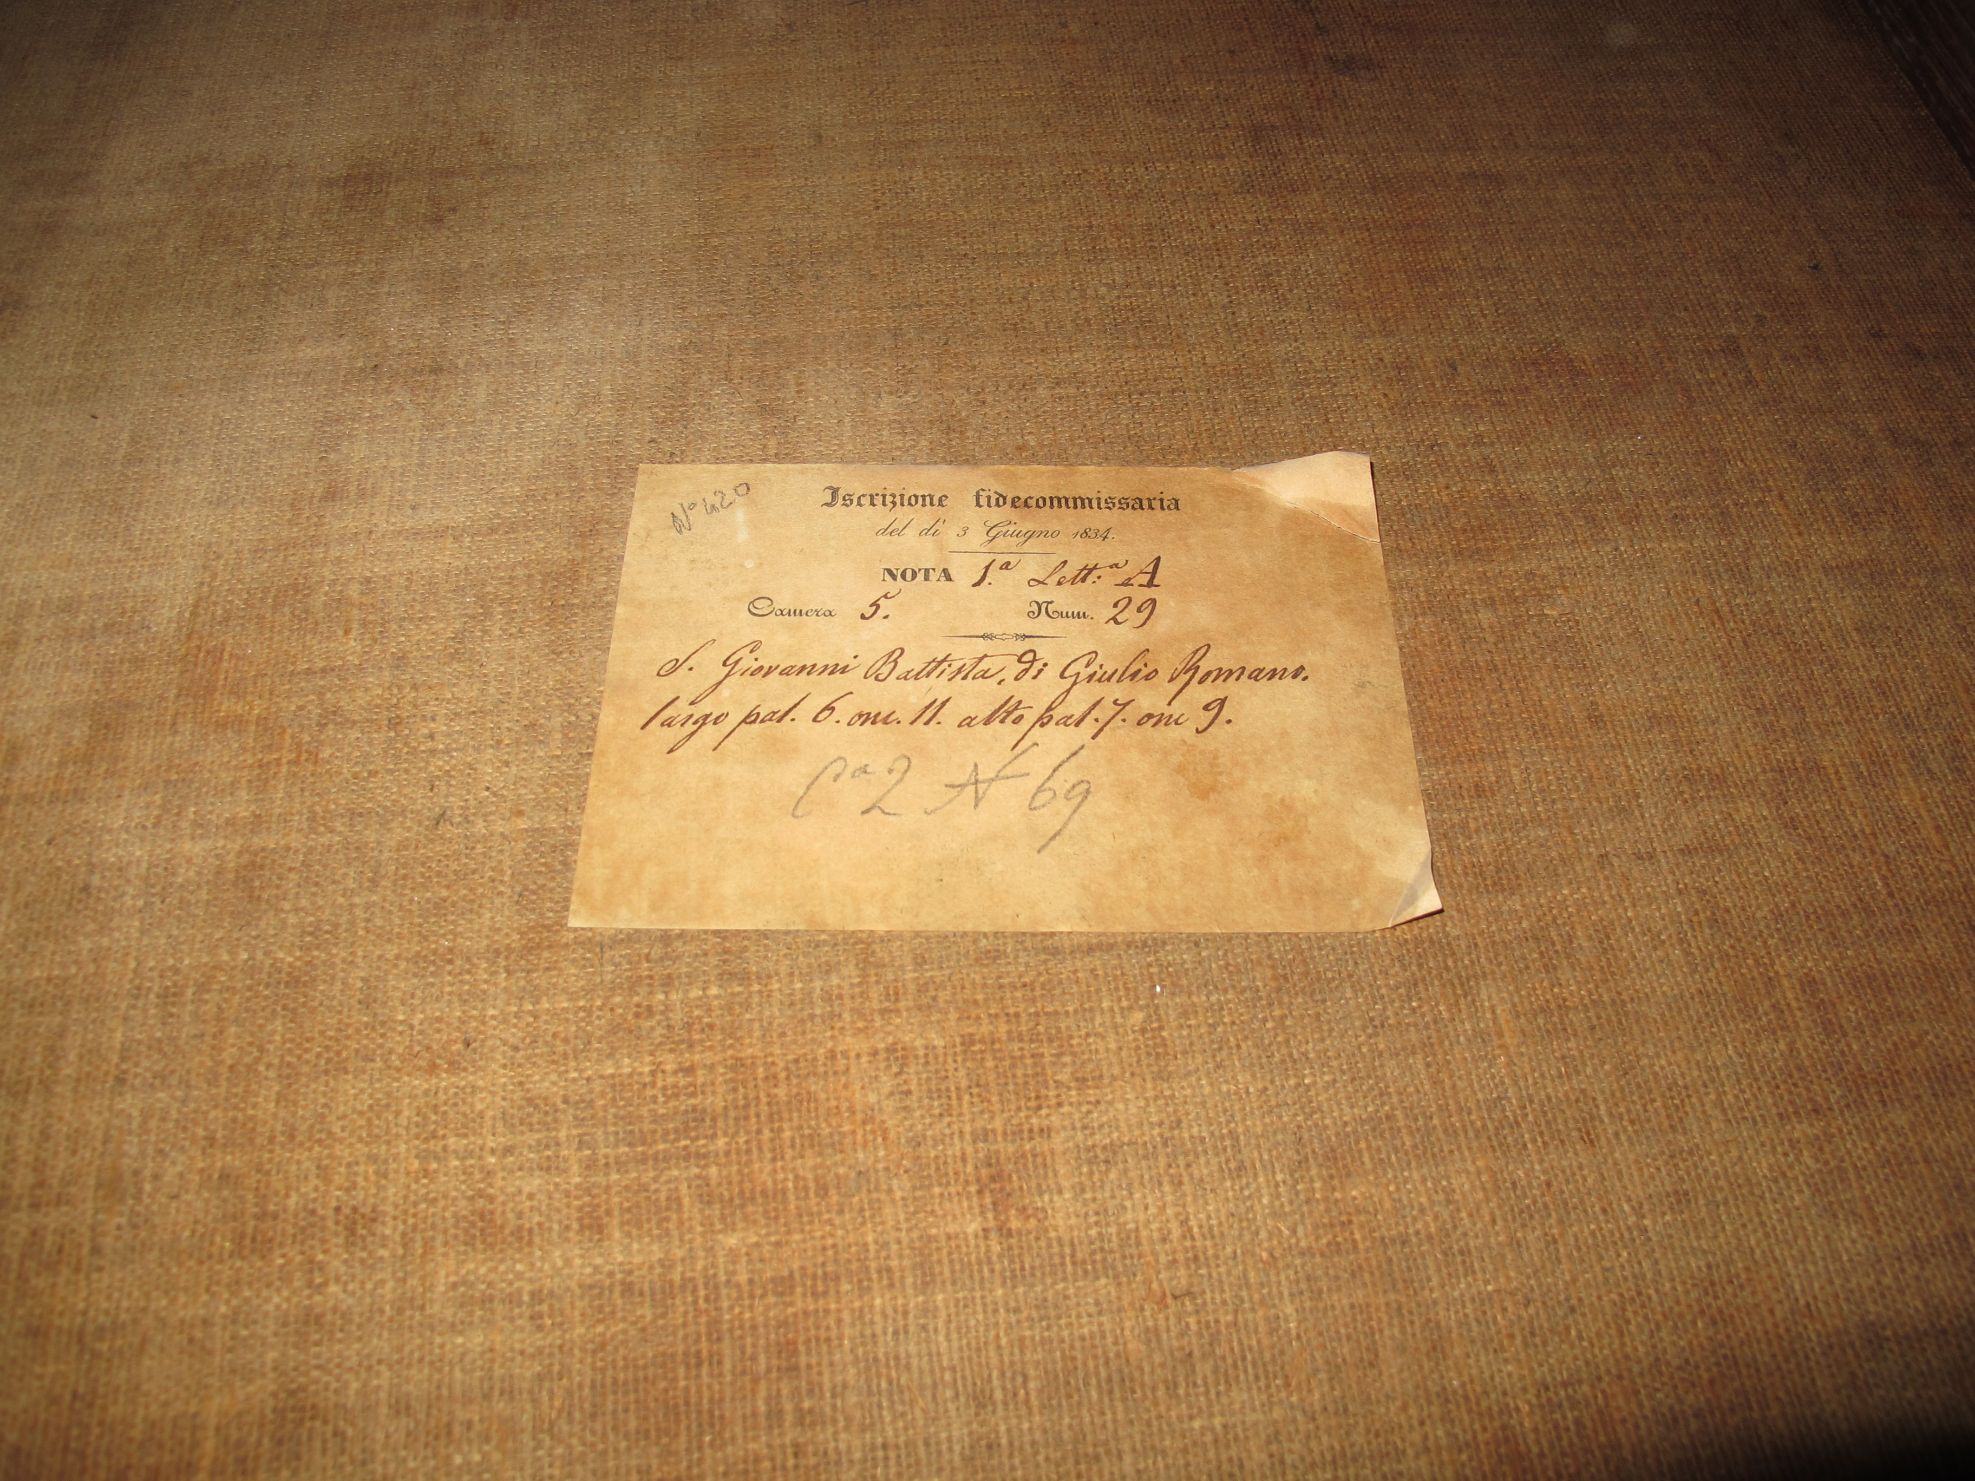 N° 420
Iscrizione fidecommissaria
del dì 3 Giugno 1834.
NOTA 1.ª Lett:ª A
Camera 5. Num. 29
S. Giovanni Battista, di Giulio Romano.
largo pal. 6. onc. 11. alto pal. 7. onc 9.
Cª 2 N 69